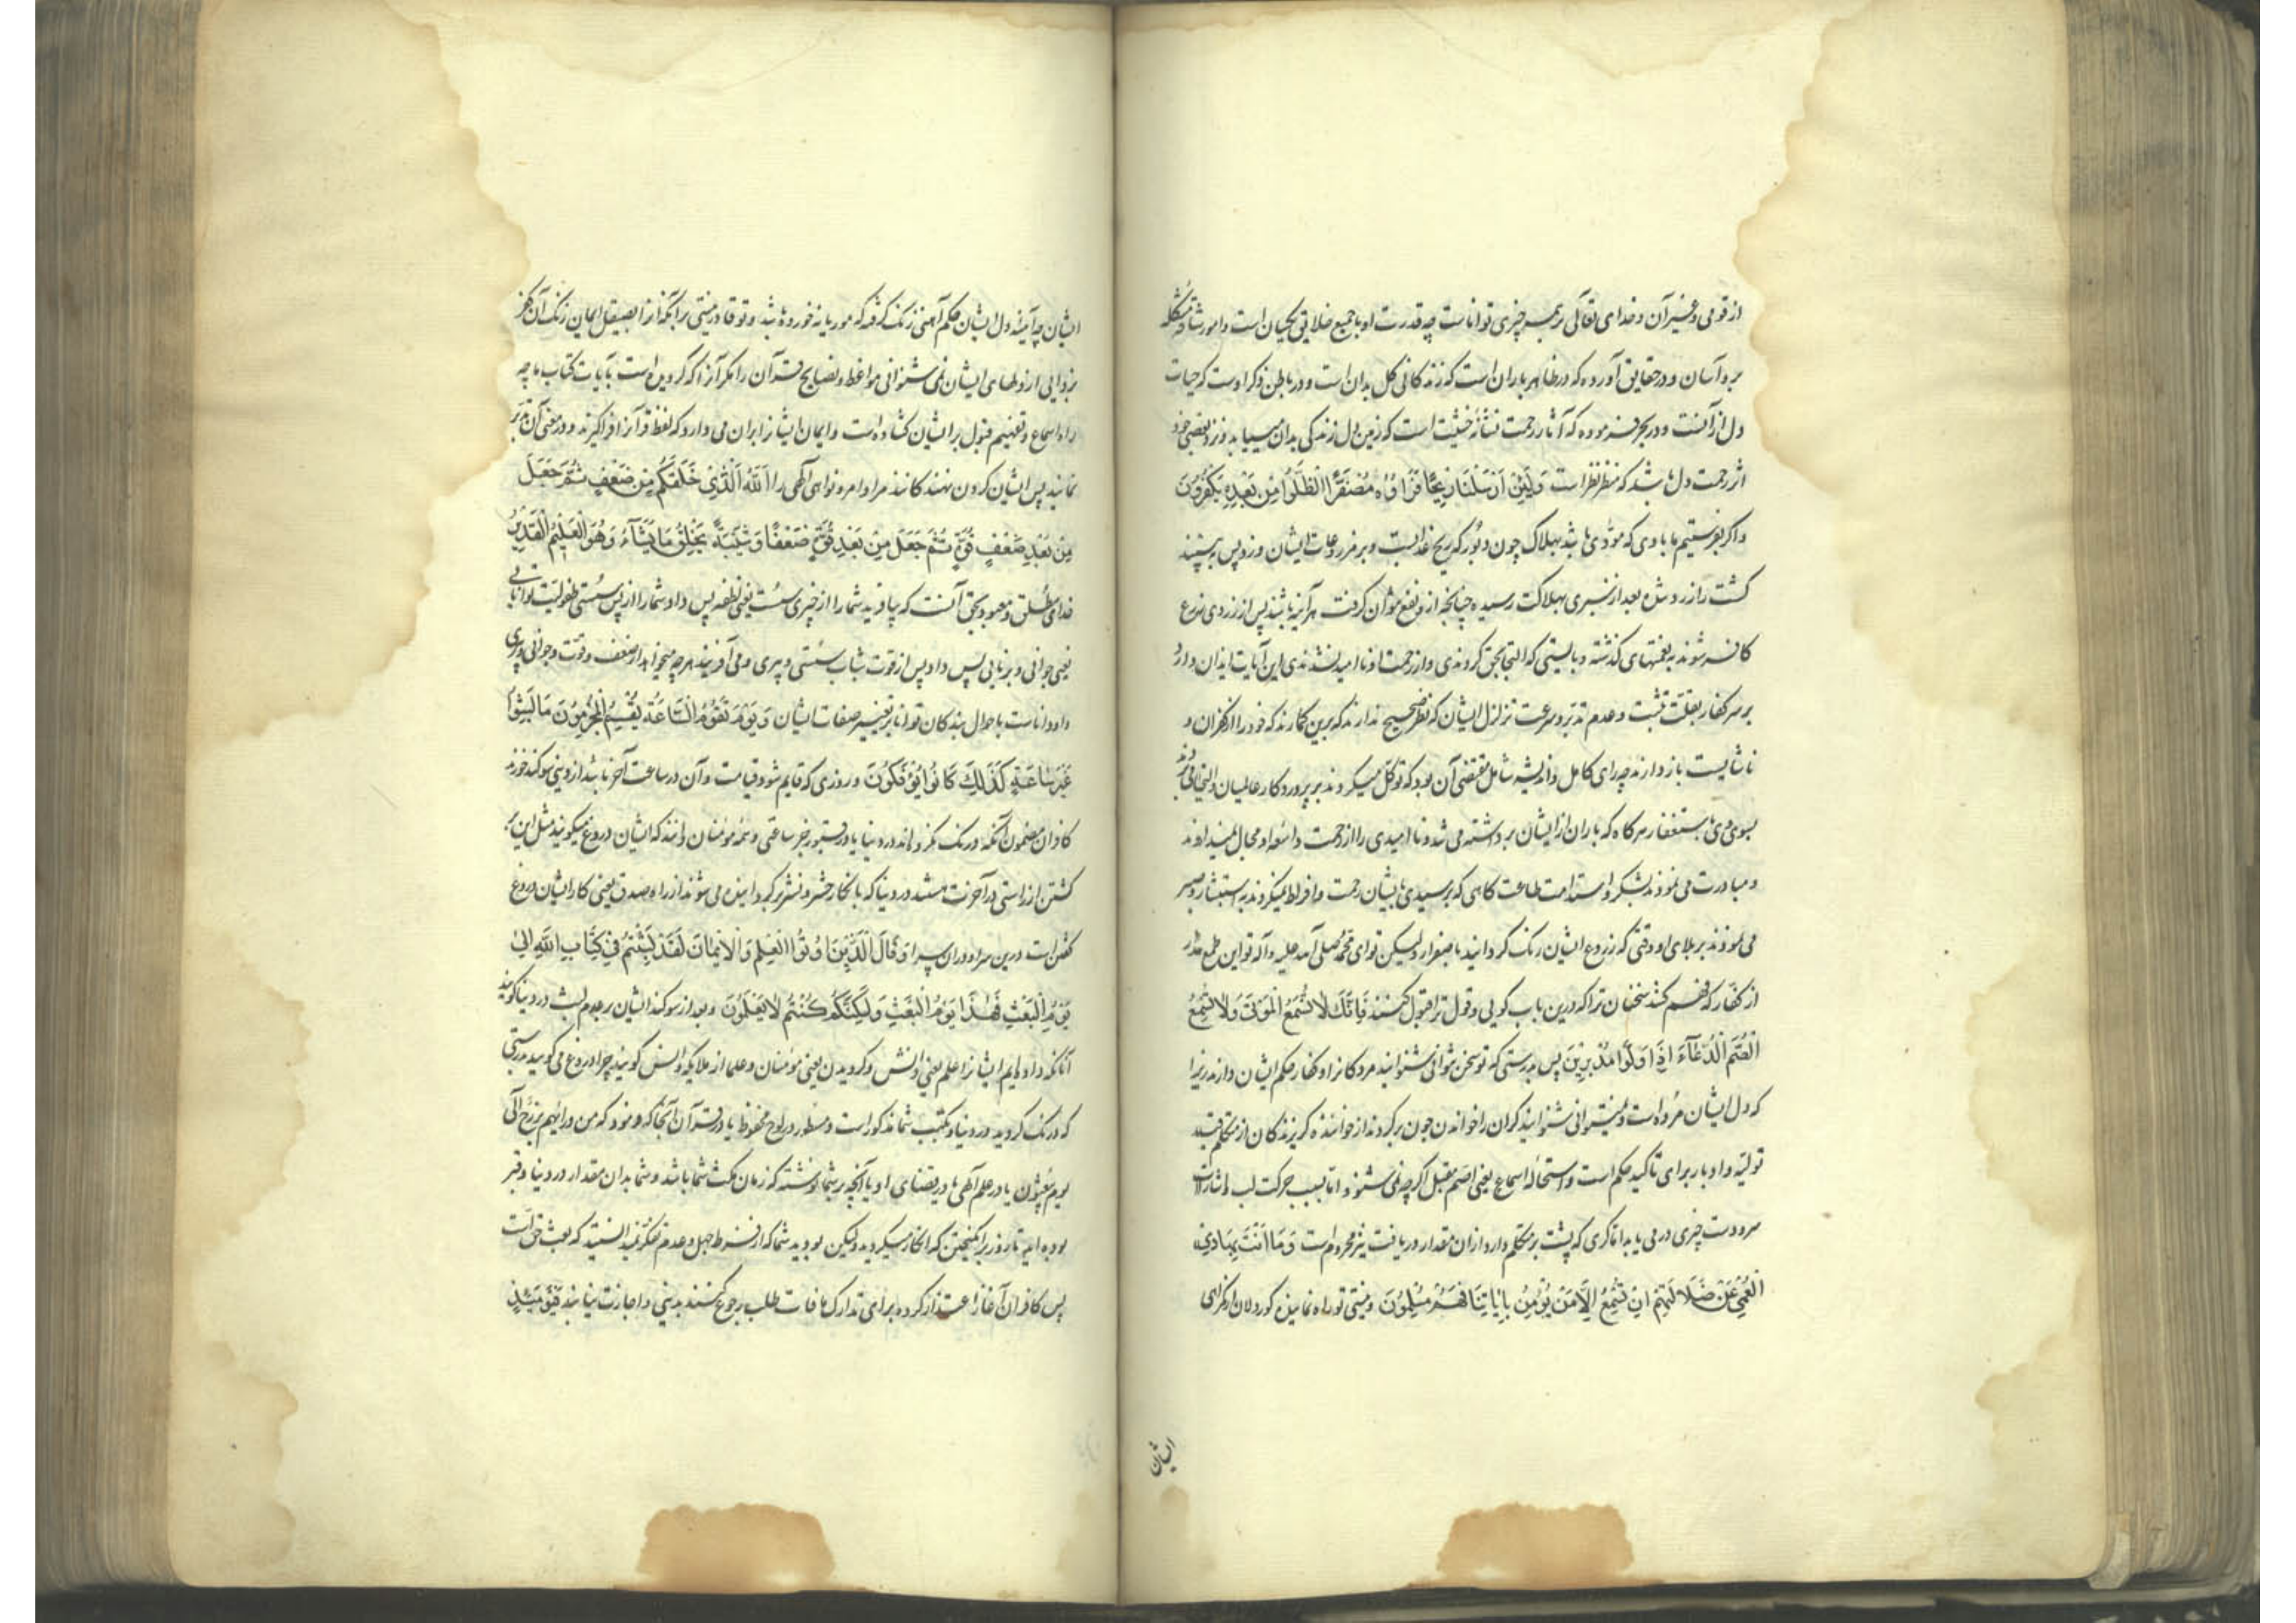 از قومی و غیر آن و خدای تعالی بر همه چیزی تواناست چه قدرت او با جمیع خلایق یکسان است و امور شاقه و مشکله
بر وآسان و در حقایق آورده که در ظاهر باران است که زندگانی کل بدان است و در باطن ذکر اوست که حیات
دل از آنست و در بحر فرموده که آثار رحمت نشانه خشیت است که زمین دل زندگی بدان مییابد و نزد بعضی خود
اثر رحمت دل باشد که منظر نظر است وَلَئِنْ اَرْسَلْنَا رِيحًا فَرَاَوْهُ مُصْفَرًّا لَظَلُّوا مِنْ بَعْدِهِ يَكْفُرُونَ
و اگر بفرستیم ما بادی که مؤدی باشد بهلاک چون دبور که ریح عذابست و بر مزروعات ایشان وزد پس به بینند
کشت را زرد شده بعد از سبزی بهلاکت رسیده چنانچه ازو نفع نتوان گرفت هر آینه باشند پس از زردی مزرع
کافر شوند به نعمتهای گذشته و بایستی که التجا بحق کردندی و از رحمت او نا امید نشدندی این آیات ایذان دارد
بر سر کفار بقلت تثبت و عدم تدبر و سرعت تزلزل ایشان که نظر صحیح ندارند که برین گمارند که خود را از کفران و
ناشایست باز دارند چه رای کامل و اندیشه شامل مقتضی آن بود که توکل میکردند بر پروردگار عالمیان و التجا
بسوی وی باستغفار هرگاه که باران از ایشان برداشته می شد و نا امیدی را از رحمت واسعه او مجال نمیدادند
و مبادرت می نمودند بشکر و استدامت طاعت گاهی که برسیدی بایشان رحمت و افراط نمیکردند به استبشار و صبر
می نمودند بر بلای او وقتی که زروع ایشان رنگ گردانید باصفرار ولیکن تو ای محمد صلی الله علیه و آله تو این طمع مدار
از کفار که فهم کنند سخنان ترا که درین باب گویی و قول ترا قبول کنند فَاِنَّكَ لَا تُسْمِعُ الْمَوْتَىٰ وَلَا تُسْمِعُ
الصُّمَّ الدُّعَاءَ اِذَا وَلَّوْا مُدْبِرِينَ پس بدرستی که تو سخن نتوانی شنوانید مردگانرا و کفار حکم ایشان دارند زیرا
که دل ایشان مرده است و نمیتوانی شنوانید کران را خواندن چون برگردند از خواننده گریزندگان از متکلم قید
تولیه و ادبار برای تاکید حکم است و استحاله اسماع یعنی اصم مقبل اگرچه نمی شنود اما بسبب حرکت لب و اشارت
سر و دست چیزی در می یابد اما کری که پشت بر متکلم دارد از ان مقدار دریافت نیز محروم است وَمَا اَنْتَ بِهَادِي
الْعُمْيِ عَنْ ضَلَالَتِهِمْ اِنْ تُسْمِعُ اِلَّا مَنْ يُؤْمِنُ بِآيَاتِنَا فَهُمْ مُسْلِمُونَ و نیستی تو راه نماینده کور دلان از گمراهی
ایشان
ایشان چه آینه دل ایشان حکم آهنی زنگ گرفته که موریانه خورده باشد و تو قادر نیستی بر آنکه آنرا بصیقل ایمان زنگ آن کفر
بزدایی از دلهای ایشان نمی شنوانی مواعظ و نصایح قرآن را مگر آنرا که گرویده است بآیات کتاب ما چه
راه اسماع و تفهیم قبول بر ایشان گشاده است و ایمان ایشانرا بران می دارد که لفظ قرآنرا فراگیرند و در معنی آن تدبر
نمایند پس ایشان گردن نهندگانند مر اوامر و نواهی الهی را اَللّٰهُ الَّذِي خَلَقَكُمْ مِنْ ضَعْفٍ ثُمَّ جَعَلَ
مِنْ بَعْدِ ضَعْفٍ قُوَّةً ثُمَّ جَعَلَ مِنْ بَعْدِ قُوَّةٍ ضَعْفًا وَشَيْبَةً يَخْلُقُ مَا يَشَاءُ وَهُوَ الْعَلِيمُ الْقَدِيرُ
خدای مطلق و معبود بحق آنست که بیافرید شما را از چیزی سست یعنی نطفه پس داد شما را از پس سستی طفولیت توانایی
یعنی جوانی و برنایی پس داد پس از قوت شباب سستی و پیری و می آفریند هرچه میخواهد از ضعف و قوت و جوانی و پیری
و او داناست باحوال بندگان توانا بر تغییر صفات ایشان وَيَوْمَ تَقُومُ السَّاعَةُ يُقْسِمُ الْمُجْرِمُونَ مَا لَبِثُوا
غَيْرَ سَاعَةٍ كَذَٰلِكَ كَانُوا يُؤْفَكُونَ و روزی که قایم شود قیامت و آن در ساعت آخر باشد از دنیی سوگند خورند
کافران مضمون آنکه درنگ نکرده اند در دنیا یا در قبور جز ساعتی و همه مؤمنان دانند که ایشان دروغ میگویند مثل این
گشتن از راستی در آخرت هستند در دنیا که بانکار حشر و نشر گردانیده می شوند از راه صدق یعنی کار ایشان دروغ
گفتن است درین سرا و دران سرا وَقَالَ الَّذِينَ اُوتُوا الْعِلْمَ وَالْاِيمَانَ لَقَدْ لَبِثْتُمْ فِي كِتَابِ اللّٰهِ اِلَىٰ
يَوْمِ الْبَعْثِ فَهَٰذَا يَوْمُ الْبَعْثِ وَلَٰكِنَّكُمْ كُنْتُمْ لَا تَعْلَمُونَ و بعد از سوگند ایشان بر عدم لبث در دنیا گویند
آنانکه داده ایم ایشانرا علم یعنی دانش و گرویدن یعنی مؤمنان و علما از ملایکه و انس گویند چرا دروغ می گویید بدرستی
که درنگ کردید در دنیا و مکتب شما مذکور است و مسطور در لوح محفوظ یا در قرآن آنجا که فرمود که من ورائهم برزخ الی
یوم یبعثون یا در علم آلهی یا در قضای او یا آنچه بر شما نوشته که زمان مکث شما باشد و شما بدان مقدار در دنیا و قبر
بوده اید تا روز برانگیختن که انکار میکردید ولیکن بودید شما که از فرط جهل و عدم تفکر نمیدانستید که بعث حق است
پس کافران آغاز اعتذار کرده برای تدارک مافات طلب رجوع کنند بدنیی و اجازت نیابند فَيَوْمَئِذٍ